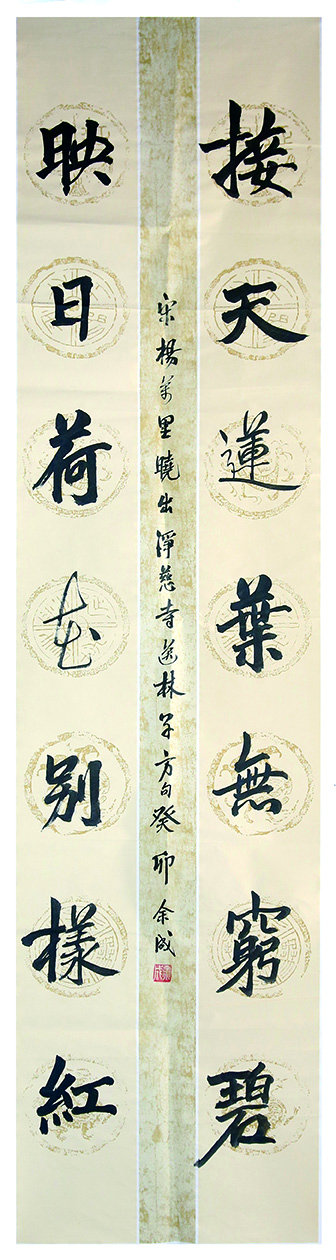 接天蓮葉無窮碧
映日荷花別樣紅
宋楊萬里曉出淨慈寺送林子方句癸卯余成